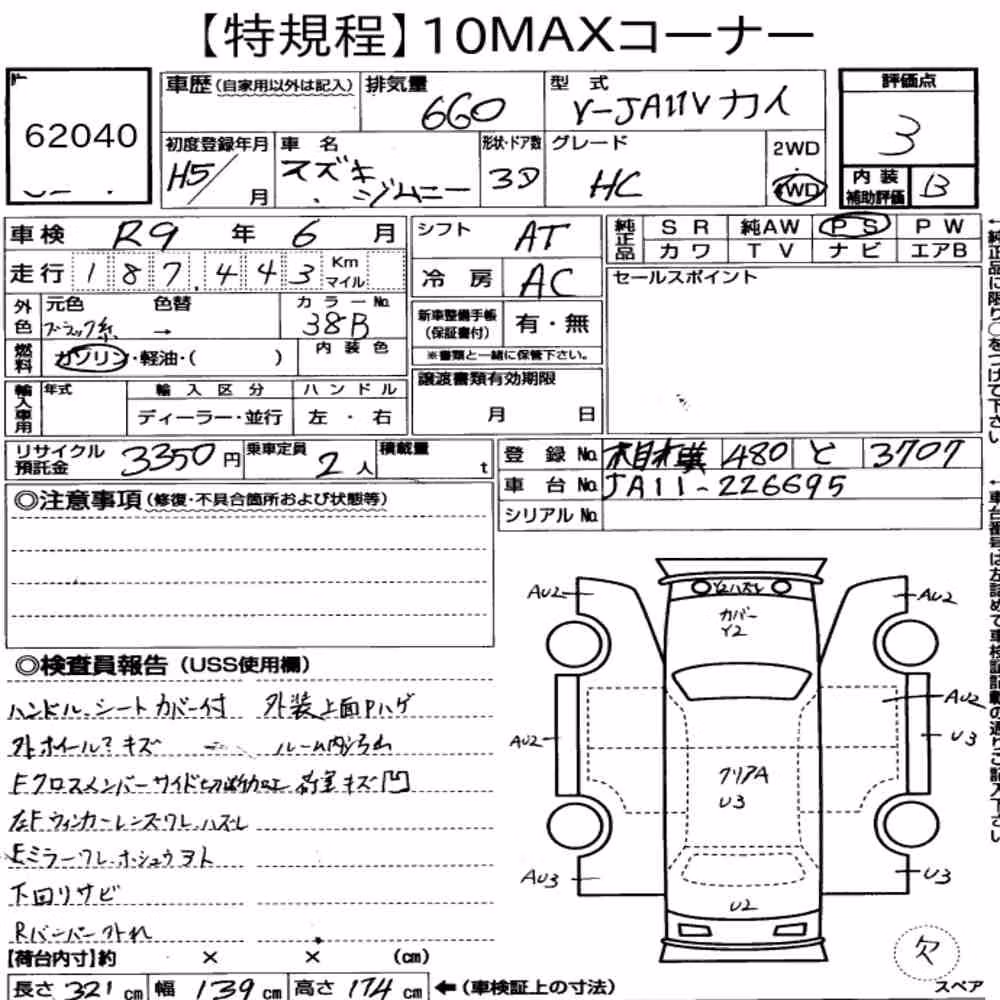 【特規程】10MAXコーナー
62040
車歴 (自家用以外は記入) 排気量 660 型式 V-JA11V カイ
評価点 3
初度登録年月 H5/ 月 車名 スズキ ジムニー 形状・ドア数 3D グレード HC 2WD 4WD
内装補助評価 B
車検 R9 年 6 月
シフト AT
純正品 SR 純AW PS PW
カワ TV ナビ エアB
走行 187,443 Km マイル
冷房 AC
セールスポイント
外色 元色 ブラック系 色替 → カラーNo. 38B
新車整備手帳 (保証書付) 有・無
※書類と一緒に保管下さい。
燃料 ガソリン・軽油・( ) 内装色
譲渡書類有効期限
月 日
輸入車用 年式 輸入区分 ハンドル
ディーラー・並行 左・右
リサイクル預託金 3350円 乗車定員 2人 積載量 t
登録No. 相模 480 と 3707
車台No. JA11-226695
シリアルNo.
◎注意事項 (修復・不具合箇所および状態等)
◎検査員報告 (USS使用欄)
ハンドル、シートカバー付 外装上面Pハゲ
外ホイール? キズ ルーム内汚れ
Fクロスメンバーサイド切断加工 荷室キズ凹
左Fウィンカーレンズワレ、ハズレ
ミラーワレ、ホシュウヨト
下回りサビ
Rバンパー外れ
【荷台内寸】約 × × (cm)
長さ 321 cm 幅 139 cm 高さ 174 cm ←(車検証上の寸法)
AU2
Y2ハズレ
カバー
Y2
AU2
AU2
AU2
U3
クリアA
U3
AU3
U3
U2
欠
スペア
←純正品に限り〇をつけて下さい
←車台番号は左詰めで車検証記載の通りご記入下さい